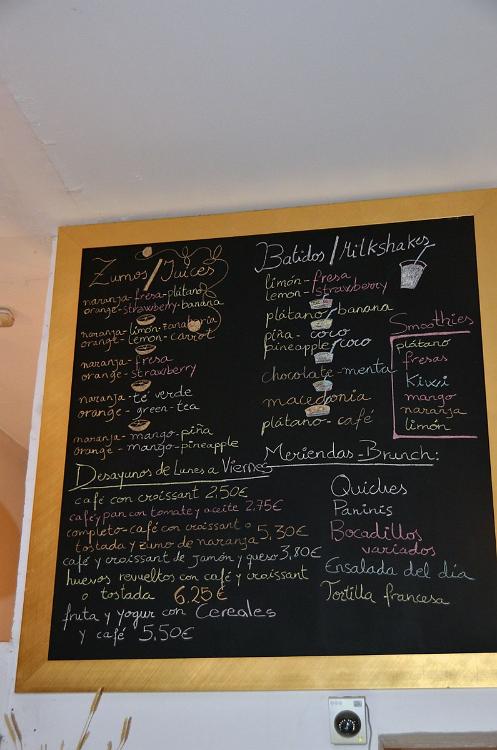 Zumos/Juices
naranja-fresa-plátano
orange-strawberry-banana
naranja-limón-zanahoria
orange-lemon-carrot
naranja-fresa
orange-strawberry
naranja-té verde
orange-green-tea
naranja-mango-piña
orange-mango-pineapple
Batidos/Milkshakes
limón-fresa
lemon-strawberry
plátano/banana
piña-coco
pineapple/coco
chocolate-menta
macedonia
plátano-café
Smoothies
plátano
fresas
Kiwi
mango
naranja
limón
Desayunos de Lunes a Viernes
café con croissant 2.50€
café y pan con tomate y aceite 2.75€
completo-café con croissant o
tostada y zumo de naranja 5,30€
café y croissant de jamón y queso 3,80€
huevos revueltos con café y croissant
o tostada 6.25€
fruta y yogur con Cereales
y café 5,50€
Meriendas-Brunch:
Quiches
Paninis
Bocadillos
variados
Ensalada del día
Tortilla francesa